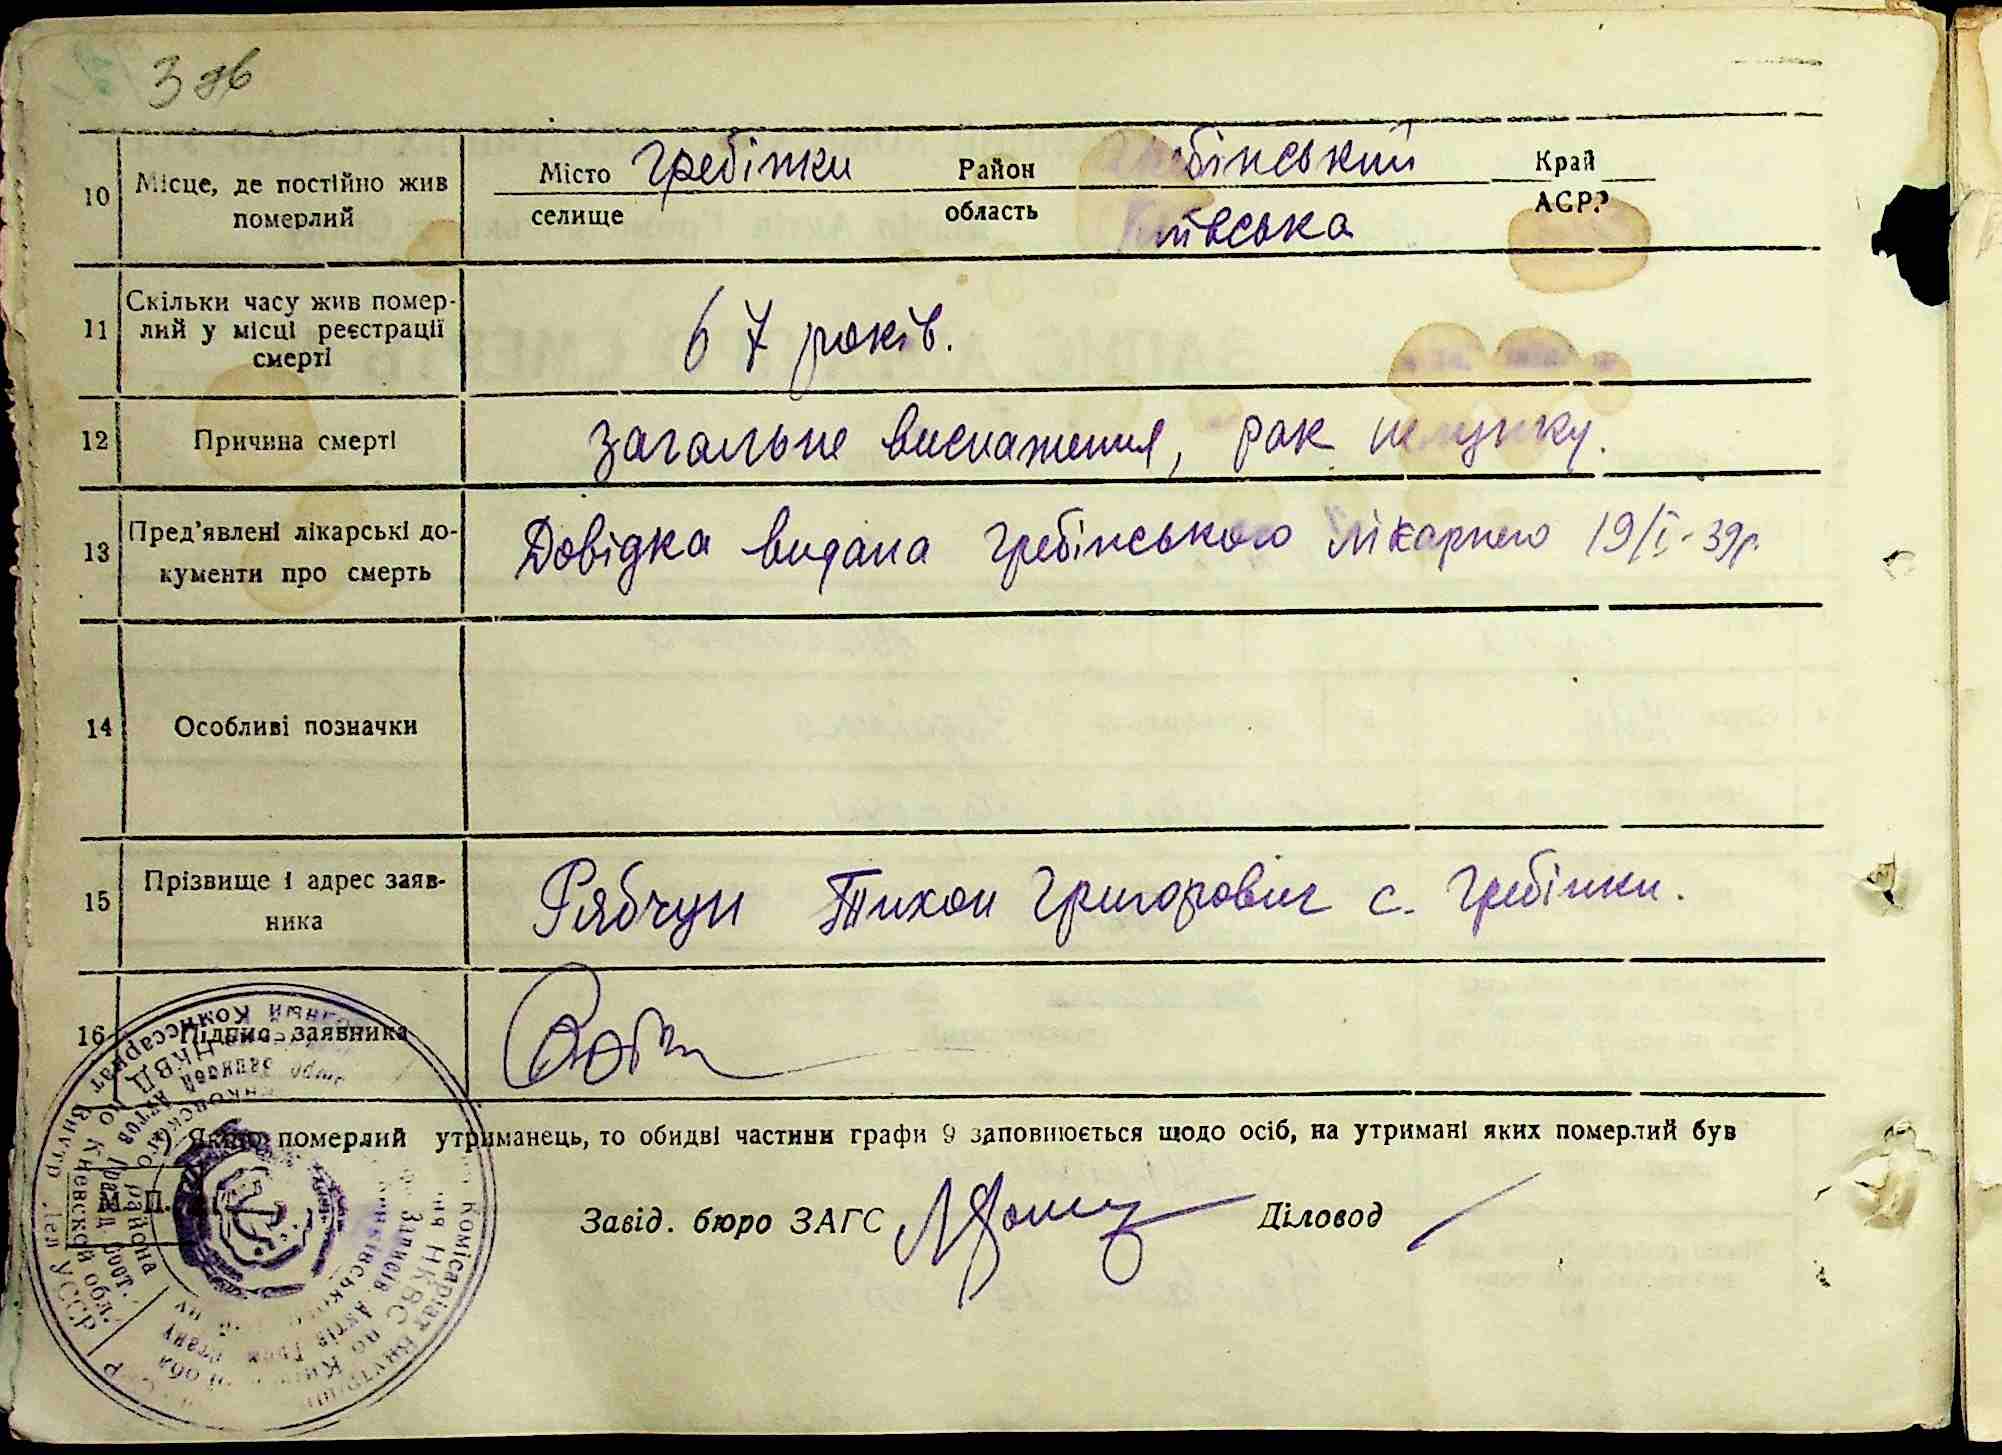 3 зв
10 Місце, де постійно жив померлий
Місто Гребінки Район Гребінський Край
селище область Київська АСРР
11 Скільки часу жив помер-
лий у місці реєстрації
смерті
67 років.
12 Причина смерті загальне виснаження, рак шлунку.
13 Пред'явлені лікарські до-
кументи про смерть
Довідка видана Гребінською лікарнею 19/I-39р.
14 Особливі позначки
15 Прізвище і адрес заяв-
ника
Рябчун Тихон Григорович с. Гребінки.
16 Підпис заявника
Якщо померлий утриманець, то обидві частини графи 9 заповнюється щодо осіб, на утримані яких померлий був
М. П.
Завід. бюро ЗАГС Діловод